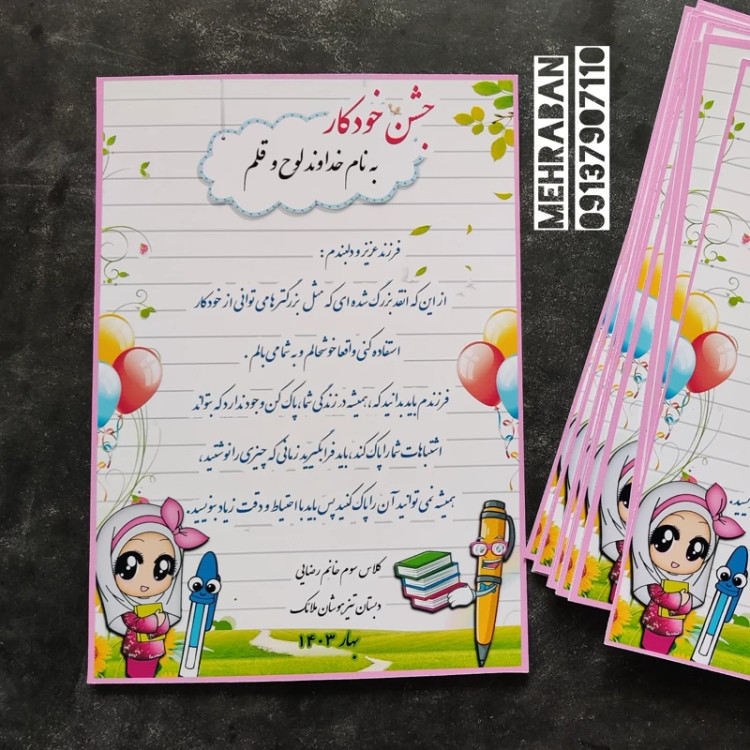 جشن خودکار
به نام خداوند لوح و قلم
فرزند عزیز و دلبندم :
از این که انقد بزرگ شده ای که مثل بزرگترها می توانی از خودکار
استفاده کنی واقعا خوشحالم و به شما می بالم .
فرزندم باید بدانید که ، همیشه در زندگی شما، پاک کن وجود ندارد که بتواند
اشتباهات شما را پاک کند، باید فرا بگیرید زمانی که چیزی را نوشتید،
همیشه نمی توانید آن را پاک کنید پس باید با احتیاط و دقت زیاد بنویسید.
کلاس سوم خانم رضایی
دبستان تیزهوشان ملائک
بهار ۱۴۰۳
MEHRABAN
09137907110